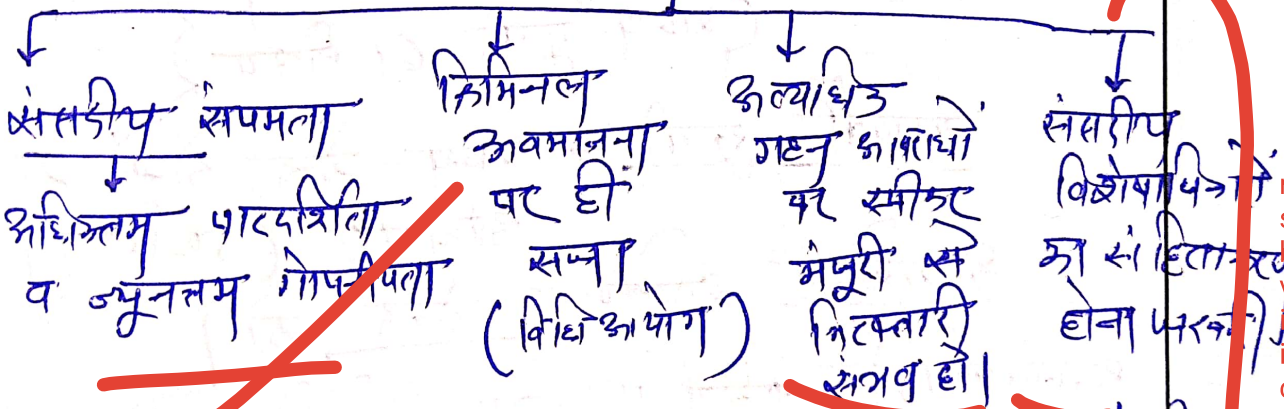 संसदीय संयमता
अधिकतम पारदर्शिता
व न्यूनतम गोपनीयता
क्रिमिनल
अवमानना
पर ही
सजा
(विधि आयोग)
अत्याधिक
गहन अपराधों
पर स्पीकर
मंजूरी से
गिरफ्तारी
संभव हो।
संसदीय
विशेषाधिकारों
का संहिताकरण
होना